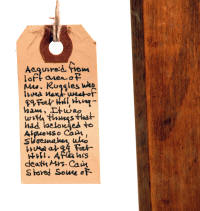 Acquired from
loft area of
Mrs. Ruggles who
lived next west of
89 Fort Hill Hing-
ham. It was
with things that
had belonged to
Alphonso Cain,
Shoemaker, who
lived at 89 Fort
Hill. After his
death Mrs. Cain
stored some of